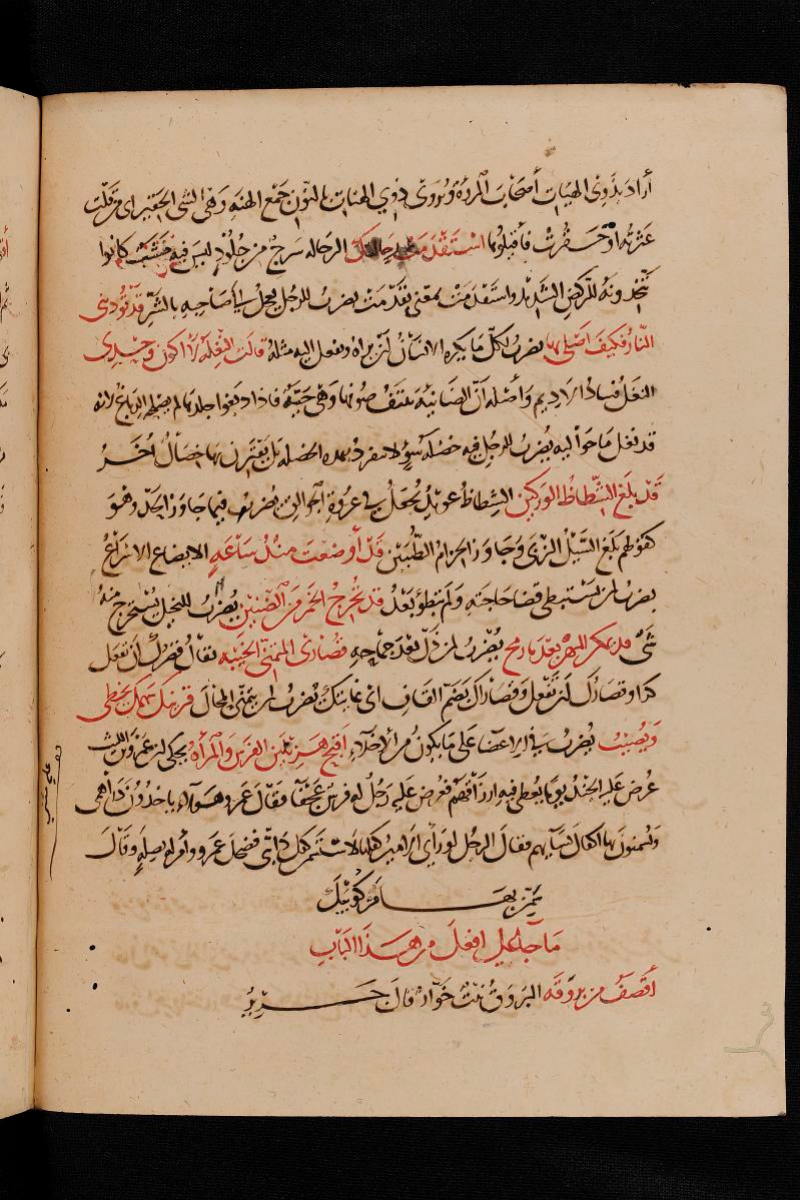 أراد بذوى الهيات أصحاب المروة ويروى ذوي الهنات بالنون جمع الهنة وهى الشى الحقير اى من قلت
عثرته او حقرت فأقيلوها استقدمت رحالتك الرحاله سرج من جلود ليس فيه خشب كانوا
يتخذونه للركض الشديد واستقدمت بمعنى تقدمت يضرب للرجل يعجل الى صاحبه بالشر قد تؤذينى
النار فكيف اصلى بها يضرب لكل ما يكره الانسان أن يراه ويفعل اليه مثله قالت النغله لا أكون وحدى
النغل فساد الاديم وأصله أن الضانية ينتف صوفها وهى حية فاذا دبغوا جلدها لم يصلحه الدباغ لانه
قد نغل ما حواليه يضرب للرجل فيه خصلة سوء لا تنفرد بهذه الخصلة بل يقترن بها خصال أخر
قد بلغ الشظاظ الوركين الشظاظ عويد يجعل فى عروة الجوالق يضرب فيما جاوز الحد وهو
كقولهم بلغ السيل الزبى وجاوز الحزام الطبيين قد أوضعت منذ ساعة الايضاع الاسراع
يضرب لمن يستبطى قضا حاجته ولم تبطؤ بعد قد تخرج الخمر من الضنين يضرب للبخيل يستخرج منه
شى قد يمكن المهر بعد ما رمح يضرب لمن ذل بعد جماحه قصارى المتمنى الخيبه يقال قصرك أن تفعل
كذا وقصارك أن تفعل وقصاراك بضم القاف اى غايتك يضرب لمن يتمنى المحال قرينك سهمك يخطى
ويصيب يضرب فى الاغضا على ما يكون من الاخلاء اقبح هزيلين الفرس والمرأه يحكى ان عمرو بن الليث
عرض عليه الجند يوما يعطى فيه ارزاقهم فعرض عليه رجل له فرس عجفا فقال عمرو هولاء ياخذون دراهمى
ويسمنون بها اكفال نسايهم فقال الرجل لو رأى الامير كفلها لاستسمن كفل دابتى فضحك عمرو وأمر له بصلة وقال
سمن بها مركوبيك
ما جا على افعل من هذا الباب
أقصف من بروقه البروق نبت خوار قال جرير